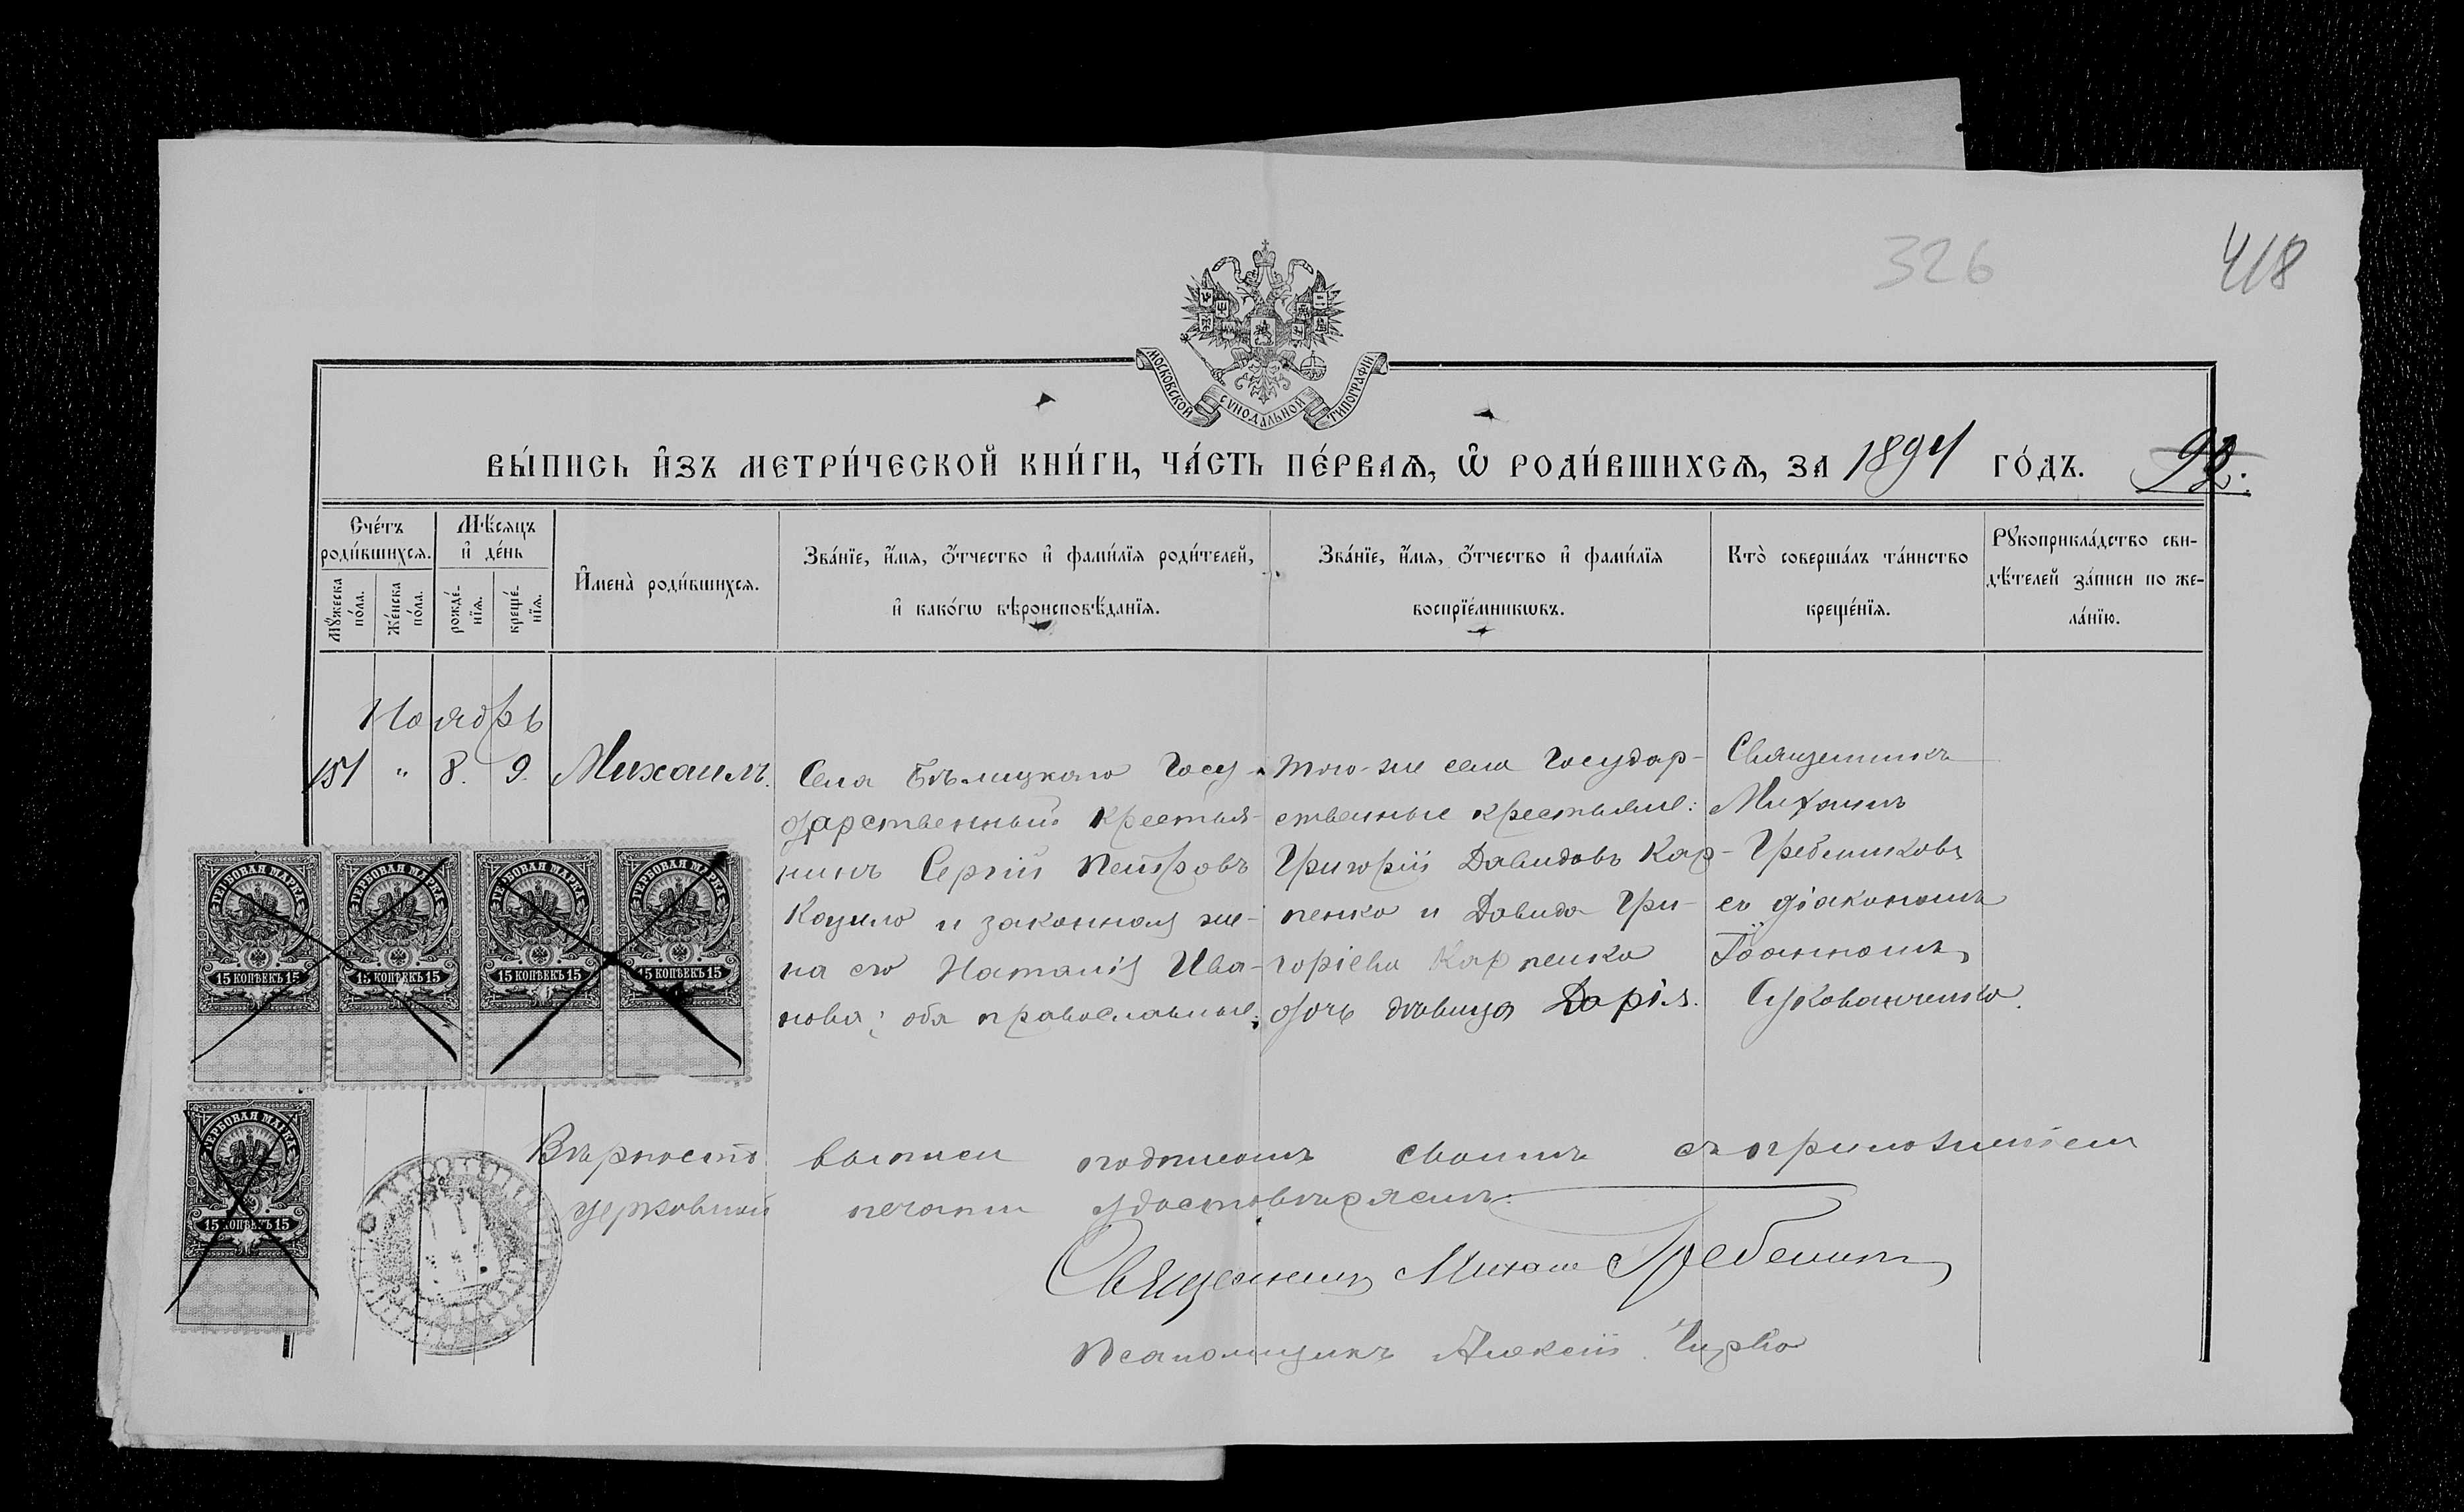 326
418
МОСКОВСКОЙ СѴНОДАЛЬНОЙ ТИПОГРАФІИ
ВЫ́ПИСЬ И҆ЗЪ МЕТРИ́ЧЕСКОЙ КНИ́ГИ, ЧА́СТЬ ПЕ́РВАѦ, Ѽ РОДИ́ВШИХСѦ, ЗА 1894 ГО́ДЪ.
Сче́тъ роди́вшихсѧ.
Мꙋ́жеска по́ла.
Же́нска по́ла.
Мѣ́сяцъ и҆ де́нь
рожде́нїѧ.
креще́нїѧ.
И҆мена̀ роди́вшихсѧ.
Зва́нїе, и҆́мѧ, ѻ҆́тчество и҆ фами́лїѧ роди́телей,
и҆ како́гѡ вѣроисповѣ́данїѧ.
Зва́нїе, и҆́мѧ, ѻ҆́тчество и҆ фами́лїѧ
воспрїе́мникѡвъ.
Кто̀ соверша́лъ та́инство
креще́нїѧ.
Рꙋкоприкла́дство сви-
дѣ́телей за́писи по же-
ла́нїю.
Ноябрь
151 " 8. 9. Михаилъ.
Села Бѣлицкаго Госу-
дарственный крестья-
нинъ Сергій Петровъ
и законная же-
на его Наталія Ива-
нова; оба православные;
Того-же села Государ-
ственные крестьяне:
Григорій Давидовъ Кар-
пенко и Давида Гри-
горіева Карпенко
дочь дѣвица Дарія.
Священникъ
Михаилъ
Гребенниковъ
съ діакономъ
Іоанномъ
ГЕРБОВАЯ МАРКА
15 КОПѢЕКЪ 15
ГЕРБОВАЯ МАРКА
15 КОПѢЕКЪ 15
ГЕРБОВАЯ МАРКА
15 КОПѢЕКЪ 15
ГЕРБОВАЯ МАРКА
15 КОПѢЕКЪ 15
ГЕРБОВАЯ МАРКА
15 КОПѢЕКЪ 15
Вѣрность выписи подписомъ своимъ съ приложеніем
церковной печати удостовѣряемъ:
Священникъ Михаил
Псаломщикъ Алексій